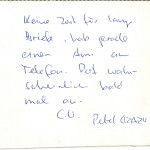 Keine Zeit für lange
Briefe, hab gerade
einen Arm am
Telefon. Ruf wahr-
scheinlich bald
mal an.
C.U. Peter